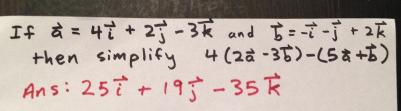 If a⃗ = 4i⃗ + 2j⃗ - 3k⃗ and b⃗ = -i⃗ - j⃗ + 2k⃗
then simplify 4(2a⃗ - 3b⃗) - (5a⃗ + b⃗)
Ans: 25i⃗ + 19j⃗ - 35k⃗